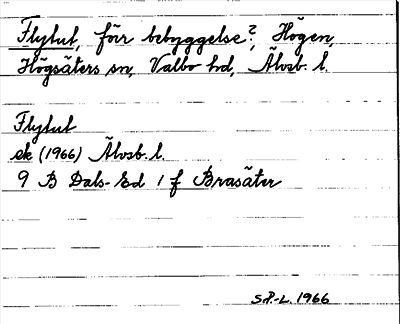 Flytut, förr bebyggelse?, Högen,
Högsäters sn, Valbo hd, Älvsb. l.
Flytut
ek (1966) Älvsb. l.
9 B Dals-Ed 1 f Brasäter
S.P.-L. 1966